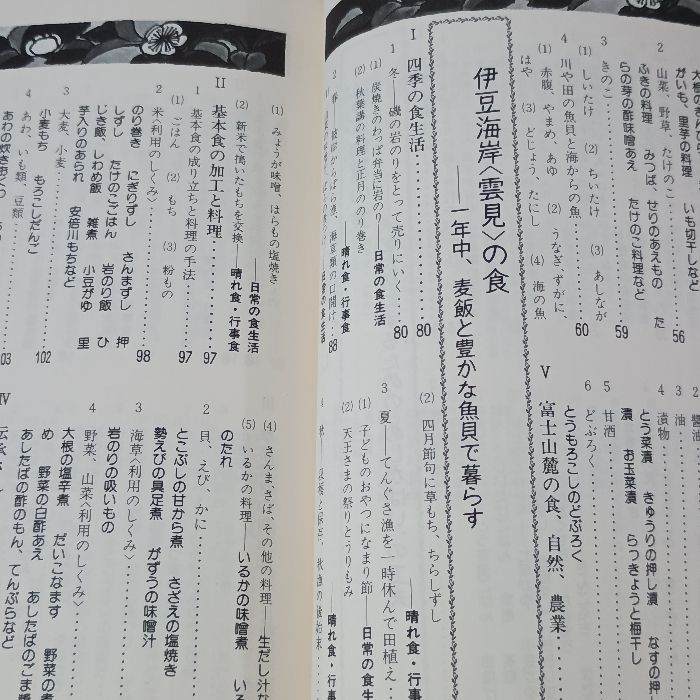 大根のきんぴら
がいも、里芋の料理　いも切干しなど
2　山菜、野草、たけのこ……56
ふきの料理　みつば、せりのあえもの　た
らの芽の酢味噌あえ　たけのこ料理など
3　きのこ……59
(1) しいたけ　(2) ちいたけ　(3) あしなが
4　川や田の魚貝と海からの魚……60
(1) 赤腹、やまめ、あゆ　(2) うなぎ、ずがに、
はや　(3) どじょう、たにし　(4) 海の魚
2　醬油
3　油
4　漬物
とう菜漬　きゅうりの押し漬　なすの押
漬　お玉菜漬　らっきょうと梅干し
5　甘酒
6　どぶろく
とうもろこしのどぶろく
V　富士山麓の食、自然、農業
伊豆海岸〈雲見〉の食
――一年中、麦飯と豊かな魚貝で暮らす
I　四季の食生活……80
1　冬――磯の岩のりをとって売りにいく……80
(1) 炭焼きのわっぱ弁当に岩のり――日常の食生活
(2) 秋葉講の料理と正月ののり巻き
――晴れ食・行事食
2　春――……海草類の口開け……88
日常の食生活
(2) 四月節句に草もち、ちらしずし
――晴れ食・行事
3　夏――てんぐさ漁を一時休んで田植え
(1) 子どものおやつになまり節――日常の食
(2) 天王さまの祭りとうりもみ
――晴れ食・行
4　秋
(1) みょうが味噌、はらもの塩焼き
――日常の食生活
(2) 新米で搗いたもちを交換――晴れ食・行事食
II　基本食の加工と料理……97
1　基本食の成り立ちと料理の手法……97
(1) ごはん　(2) もち　(3) 粉もの
2　米〈利用のしくみ〉……98
のり巻き　にぎりずし　さんまずし　押
しずし　たけのこごはん　岩のり飯　ひ
じき飯、しわめ飯　雑煮　小豆がゆ　里
芋入りのあられ　安倍川もちなど
3　大麦、小麦……102
小麦もち　もろこしだんご
4　あわ、いも類、豆類……103
あわの炊きおくわ
(4) さんま、さば、その他の料理――生だし汁な
(5) いるかの料理――いるかの味噌煮　いる
のたれ
2　貝、えび、かに
とこぶしの甘から煮　さざえの塩焼き
勢えびの具足煮　がずうの味噌汁
3　海草〈利用のしくみ〉
岩のりの吸いもの
4　野菜、山菜〈利用のしくみ〉
大根の塩辛煮　だいこなます　野菜の煮
め　野菜の白酢あえ　あしたばのごま醬
あしたばの酢のもん、てんぷらなど
IV